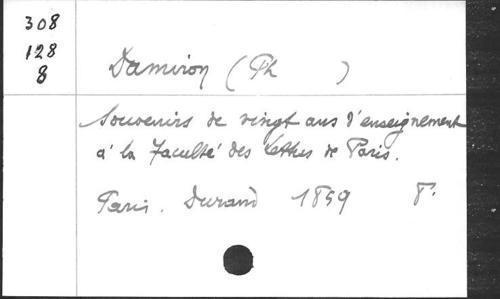 308
128
8
Damiron (Ph )
Souvenirs de vingt ans d'enseignement
à la Faculté des Lettres de Paris.
Paris. Durand 1859 8°.